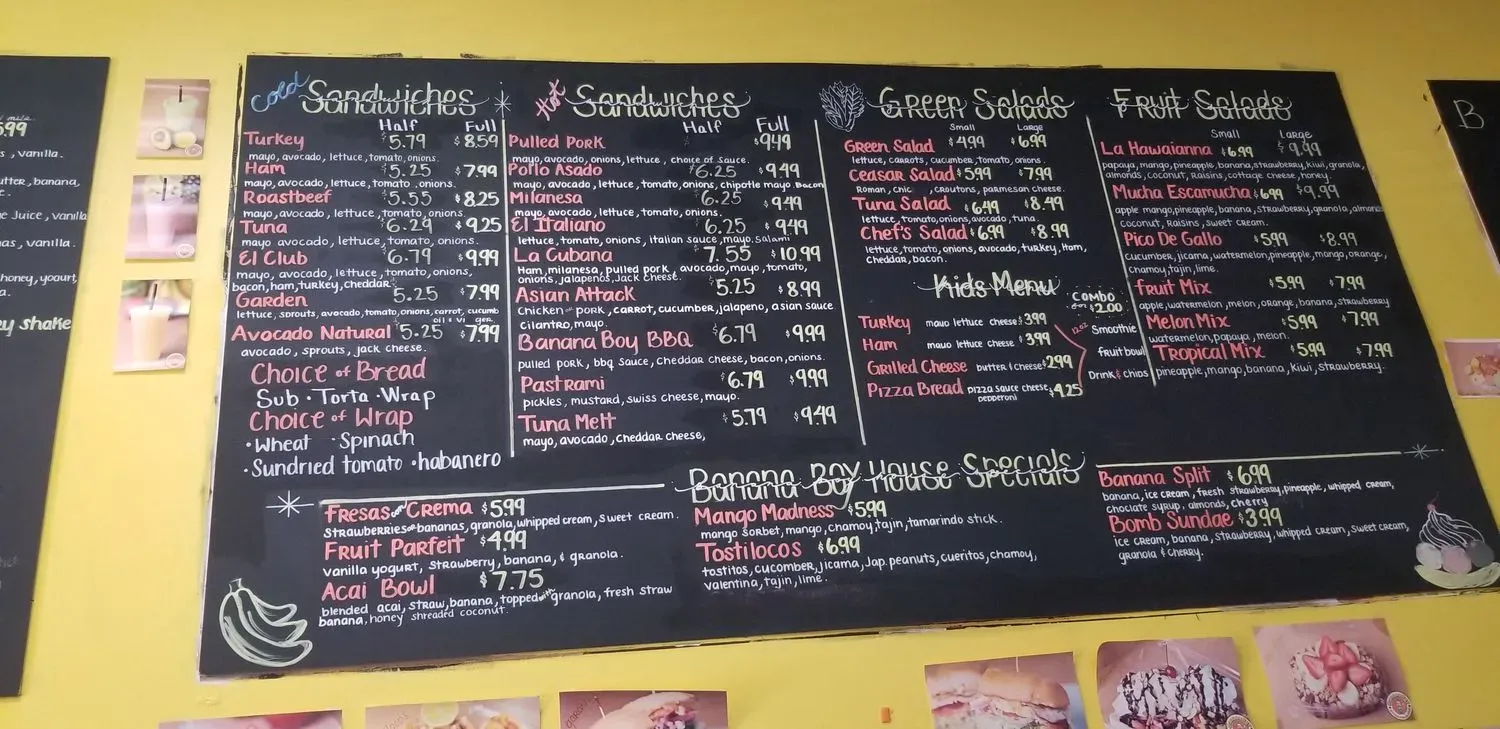 5.99
, vanilla.
utter, banana,
e.
e Juice, vanilla
nas, vanilla.
honey, yogurt,
a.
ey shake
Cold Sandwiches
Half Full
Turkey $5.79 $8.59
mayo, avocado, lettuce, tomato, onions.
Ham $5.25 $7.99
mayo, avocado, lettuce, tomato, onions.
Roastbeef $5.55 $8.25
mayo, avocado, lettuce, tomato, onions.
Tuna $6.29 $9.25
mayo avocado, lettuce, tomato, onions.
El Club $6.79 $9.99
mayo, avocado, lettuce, tomato, onions,
bacon, ham, turkey, cheddar.
Garden 5.25 $7.99
lettuce, sprouts, avocado, tomato, onions, carrot, cucumb
Avocado Natural $5.25 $7.99
avocado, sprouts, jack cheese.
Choice of Bread
Sub · Torta · Wrap
Choice of Wrap
· Wheat · Spinach
· Sundried tomato · habanero
Hot Sandwiches
Half Full
Pulled Pork $9.49
mayo, avocado, onions, lettuce, choice of sauce.
Pollo Asado $6.25 $9.49
mayo, avocado, lettuce, tomato, onions, chipotle mayo. Bacon
Milanesa $6.25 $9.49
mayo, avocado, lettuce, tomato, onions.
El Italiano $6.25 $9.49
lettuce, tomato, onions, italian sauce, mayo, salami
La Cubana $7.55 $10.99
Ham, milanesa, pulled pork, avocado, mayo, tomato,
onions, jalapeños, Jack cheese.
Asian Attack $5.25 $8.99
Chicken or pork, carrot, cucumber, jalapeno, asian sauce
cilantro, mayo.
Banana Boy BBQ $6.79 $9.99
pulled pork, bbq sauce, Cheddar cheese, bacon, onions.
Pastrami $6.79 $9.99
pickles, mustard, swiss cheese, mayo.
Tuna Melt $5.79 $9.49
mayo, avocado, cheddar cheese,
Green Salads
Small Large
Green Salad $4.99 $6.99
lettuce, carrots, cucumber, tomato, onions.
Ceasar Salad $5.99 $7.99
Roman, chic , croutons, parmesan cheese.
Tuna Salad $6.49 $8.49
lettuce, tomato, onions, avocado, tuna.
Chef's Salad $6.99 $8.99
lettuce, tomato, onions, avocado, turkey, ham,
cheddar, bacon.
Kids Menu
Combo
for $2.00
Turkey mayo lettuce cheese $3.99
Ham mayo lettuce cheese $3.99
Grilled Cheese butter & cheese $2.99
Pizza Bread pizza sauce cheese, $4.25
pepperoni
12oz Smoothie
fruit bowl
Drink & chips
Fruit Salads
Small Large
La Hawaianna $6.99 $9.99
papaya, mango, pineapple, banana, strawberry, kiwi, granola,
almonds, coconut, raisins, cottage cheese, honey.
Mucha Escamucha $6.99 $9.99
apple mango, pineapple, banana, strawberry, granola, almonds
coconut, raisins, sweet cream.
Pico De Gallo $5.99 $8.99
cucumber, jicama, watermelon, pineapple, mango, orange,
chamoy, tajin, lime.
fruit Mix $5.99 $7.99
apple, watermelon, melon, orange, banana, strawberry
Melon Mix $5.99 $7.99
watermelon, papaya, melon.
Tropical Mix $5.99 $7.99
pineapple, mango, banana, kiwi, strawberry.
Banana Boy House Specials
Fresas con Crema $5.99
strawberries or bananas, granola, whipped cream, sweet cream.
Fruit Parfeit $4.99
vanilla yogurt, strawberry, banana, & granola.
Acai Bowl $7.75
blended acai, straw, banana, topped with granola, fresh straw
banana, honey shreaded coconut.
Mango Madness $5.99
mango sorbet, mango, chamoy, tajin, tamarindo stick.
Tostilocos $6.99
tostitos, cucomber, jicama, Jap. peanuts, cueritos, chamoy,
valentina, tajin, lime.
Banana Split $6.99
banana, ice cream, fresh strawberry, pineapple, whipped cream,
choclate syrup, almonds, cherry
Bomb Sundae $3.99
ice cream, banana, strawberry, whipped cream, sweet cream,
granola & cherry.
B